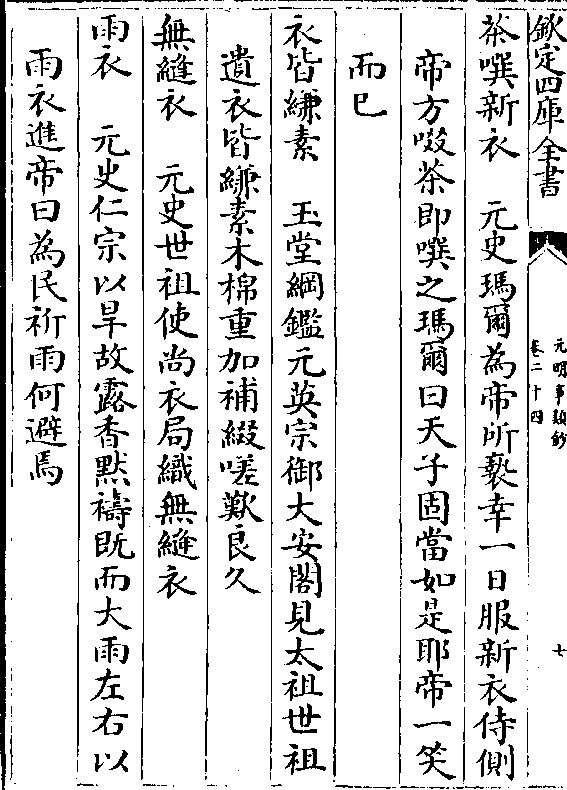 欽定四庫全書
元明事類鈔
卷二十四
七
茶噀新衣　元史瑪爾為帝所褻幸一日服新衣侍側
帝方啜茶即噀之瑪爾曰天子固當如是耶帝一笑
而已
衣皆縑素　玉堂綱鑑元英宗御大安閣見太祖世祖
遺衣皆縑素木棉重加補綴嗟歎良久
無縫衣　元史世祖使尚衣局織無縫衣
雨衣　元史仁宗以旱故露香默禱既而大雨左右以
雨衣進帝曰為民祈雨何避焉